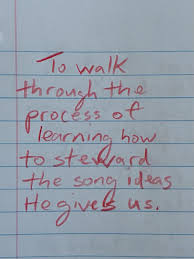 To walk
through the
process of
learning how
to steward
the song ideas
He gives us.